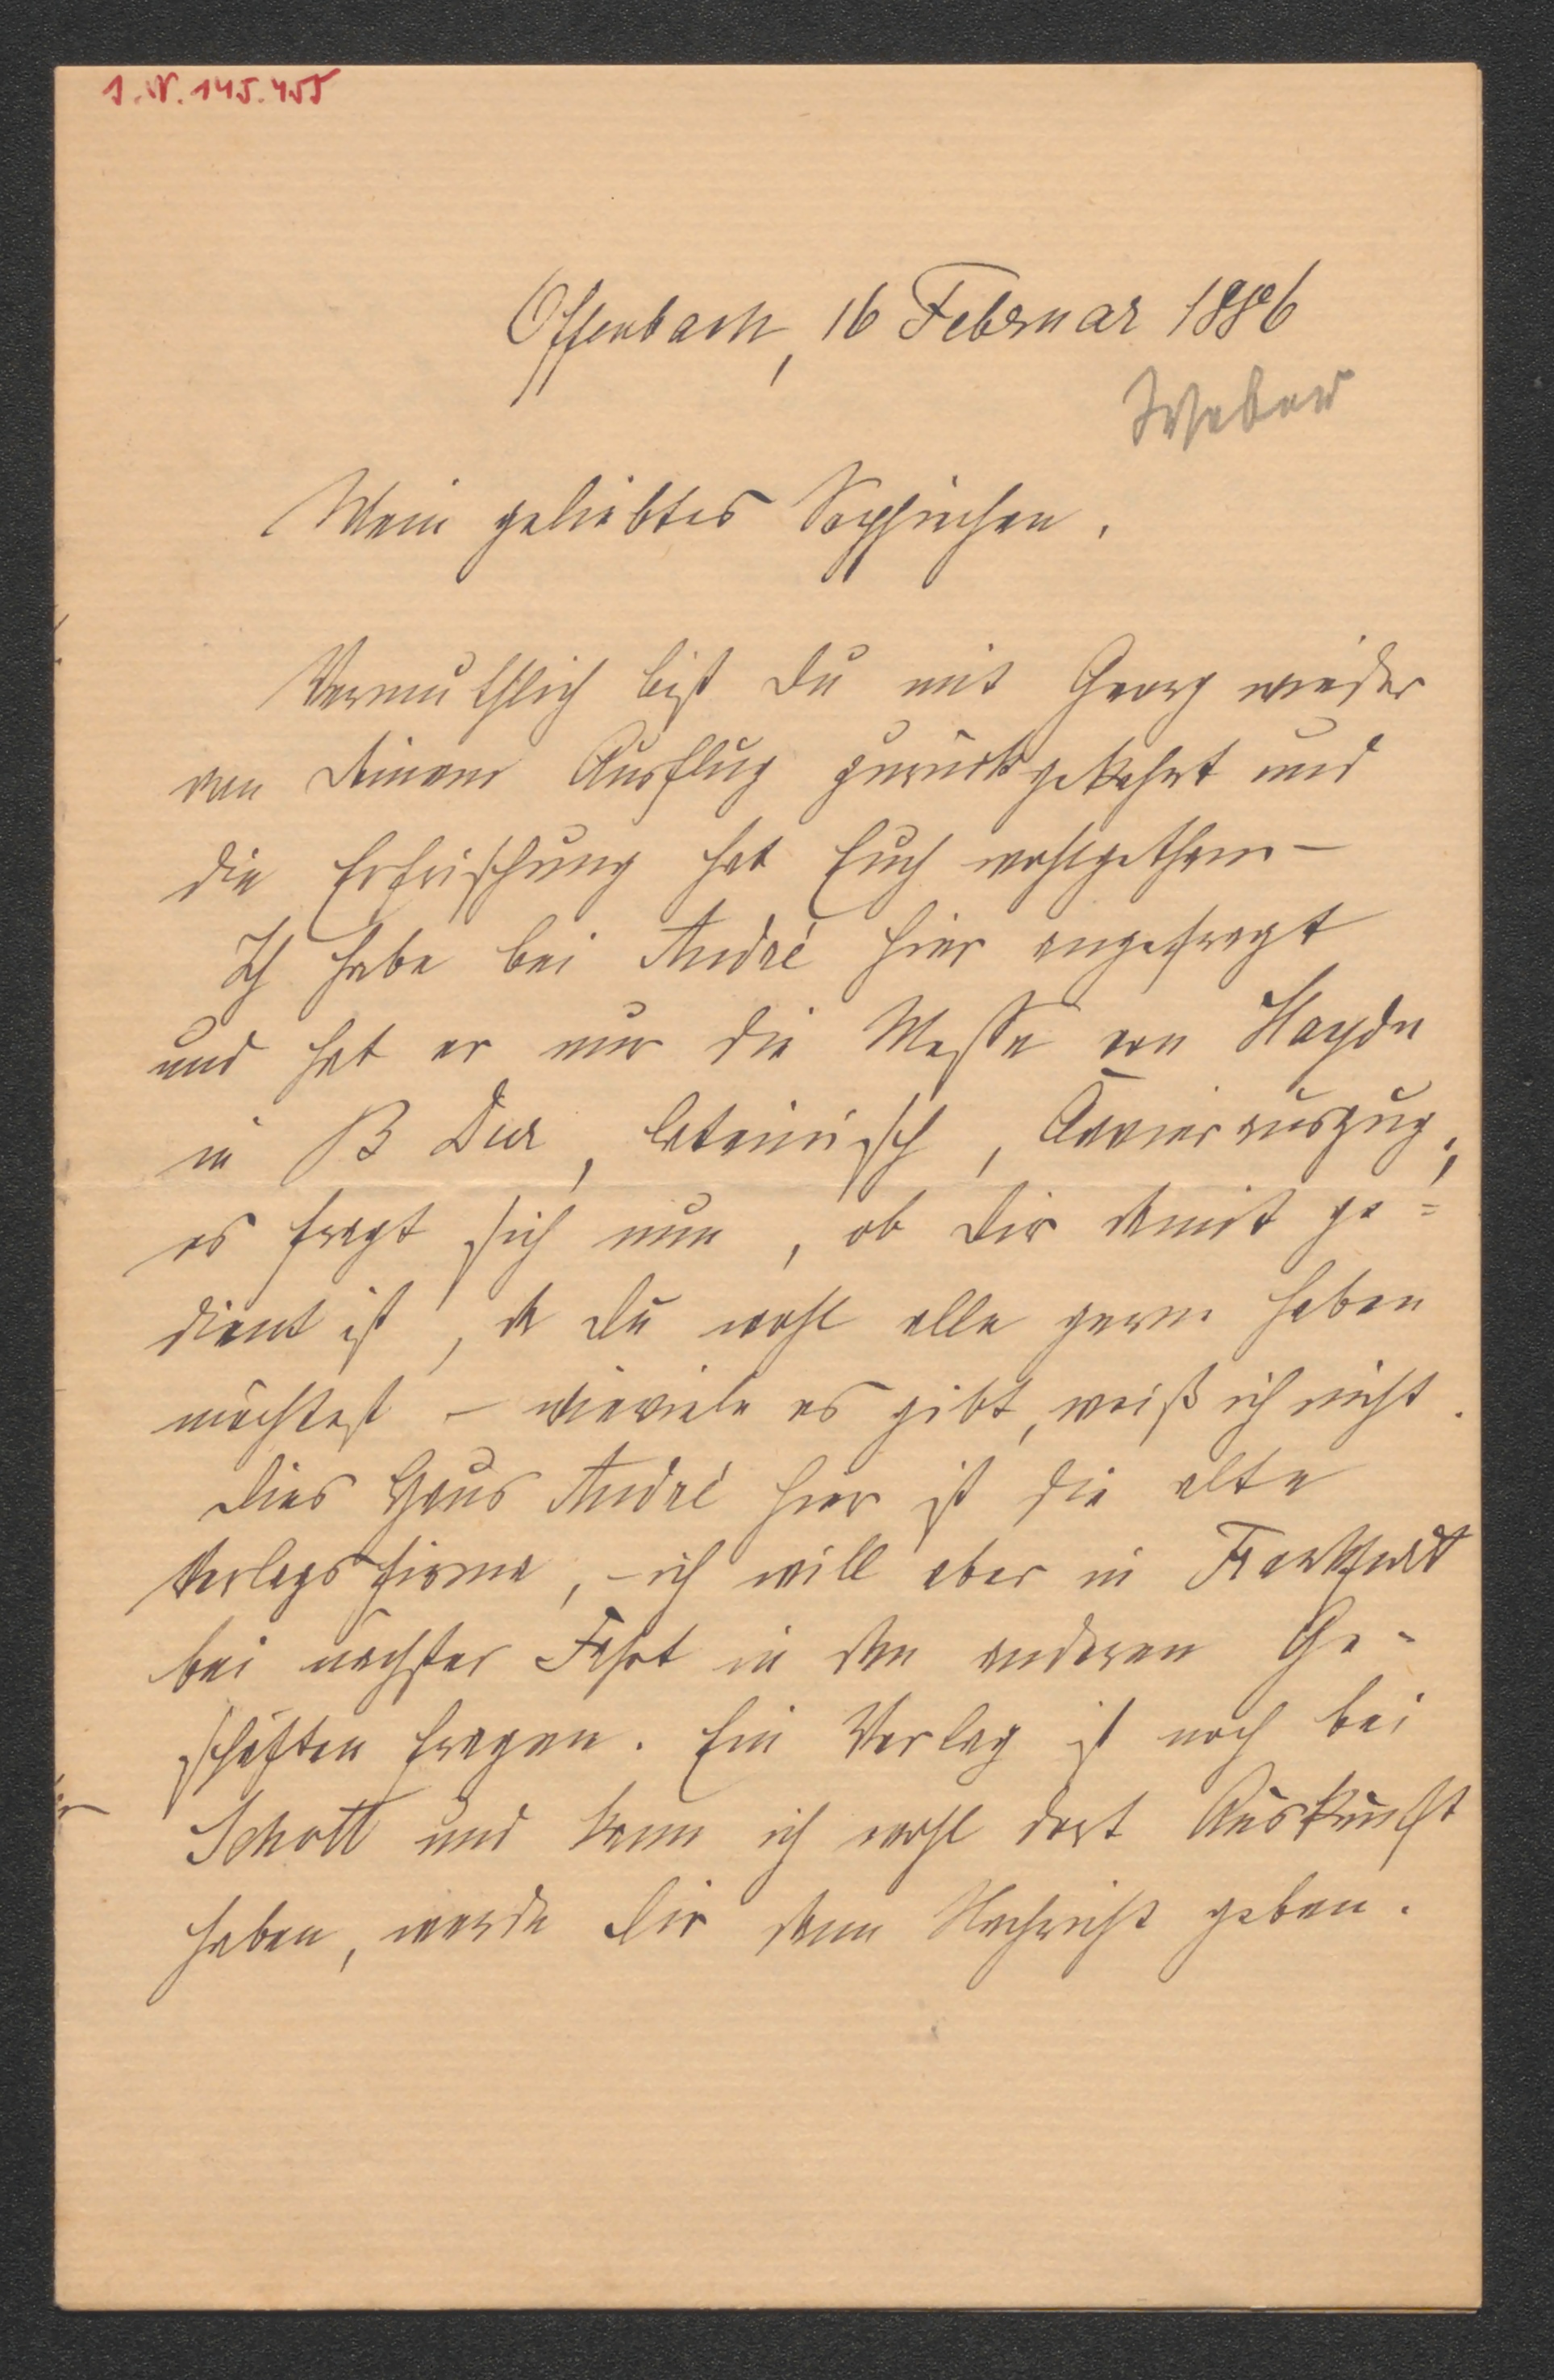 I.N. 145.455
Offenbach, 16 Februar 1886
Weber
Mein geliebtes Sophiechen.
Vermuthlich bist Du mit Georg wieder
von Deinem Ausflug zurückgekehrt und
die Erfrischung hat Euch wohlgethan –
Ich habe bei André hier angefragt
und hat er nur die Messe von Haydn
in B Dur, lateinisch, Clavierauszug;
es fragt sich nun, ob Dir damit ge=
dient ist, da Du wohl alle gerne haben
möchtest – wieviele es gibt, weiß ich nicht.
Dies Haus André hier ist die alte
Verlagsfirma, – ich will aber in Frankfurt
bei nächster Fahrt in den anderen Ge-
schäften fragen. Ein Verlag ist noch bei
Schott und kann ich wohl dort Auskunft
haben, werde Dir dann Nachricht geben.